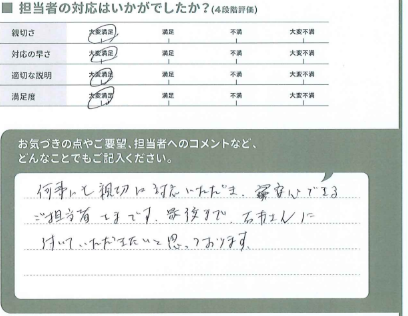 ■ 担当者の対応はいかがでしたか?(4段階評価)
親切さ 大変満足 満足 不満 大変不満
対応の早さ 大変満足 満足 不満 大変不満
適切な説明 大変満足 満足 不満 大変不満
満足度 大変満足 満足 不満 大変不満
お気づきの点やご要望、担当者へのコメントなど、
どんなことでもご記入ください。
何事にも親切に対応いただき、安心できる
ご担当者さまです。最後まで、石井さんに
付いていただきたいと思っております。